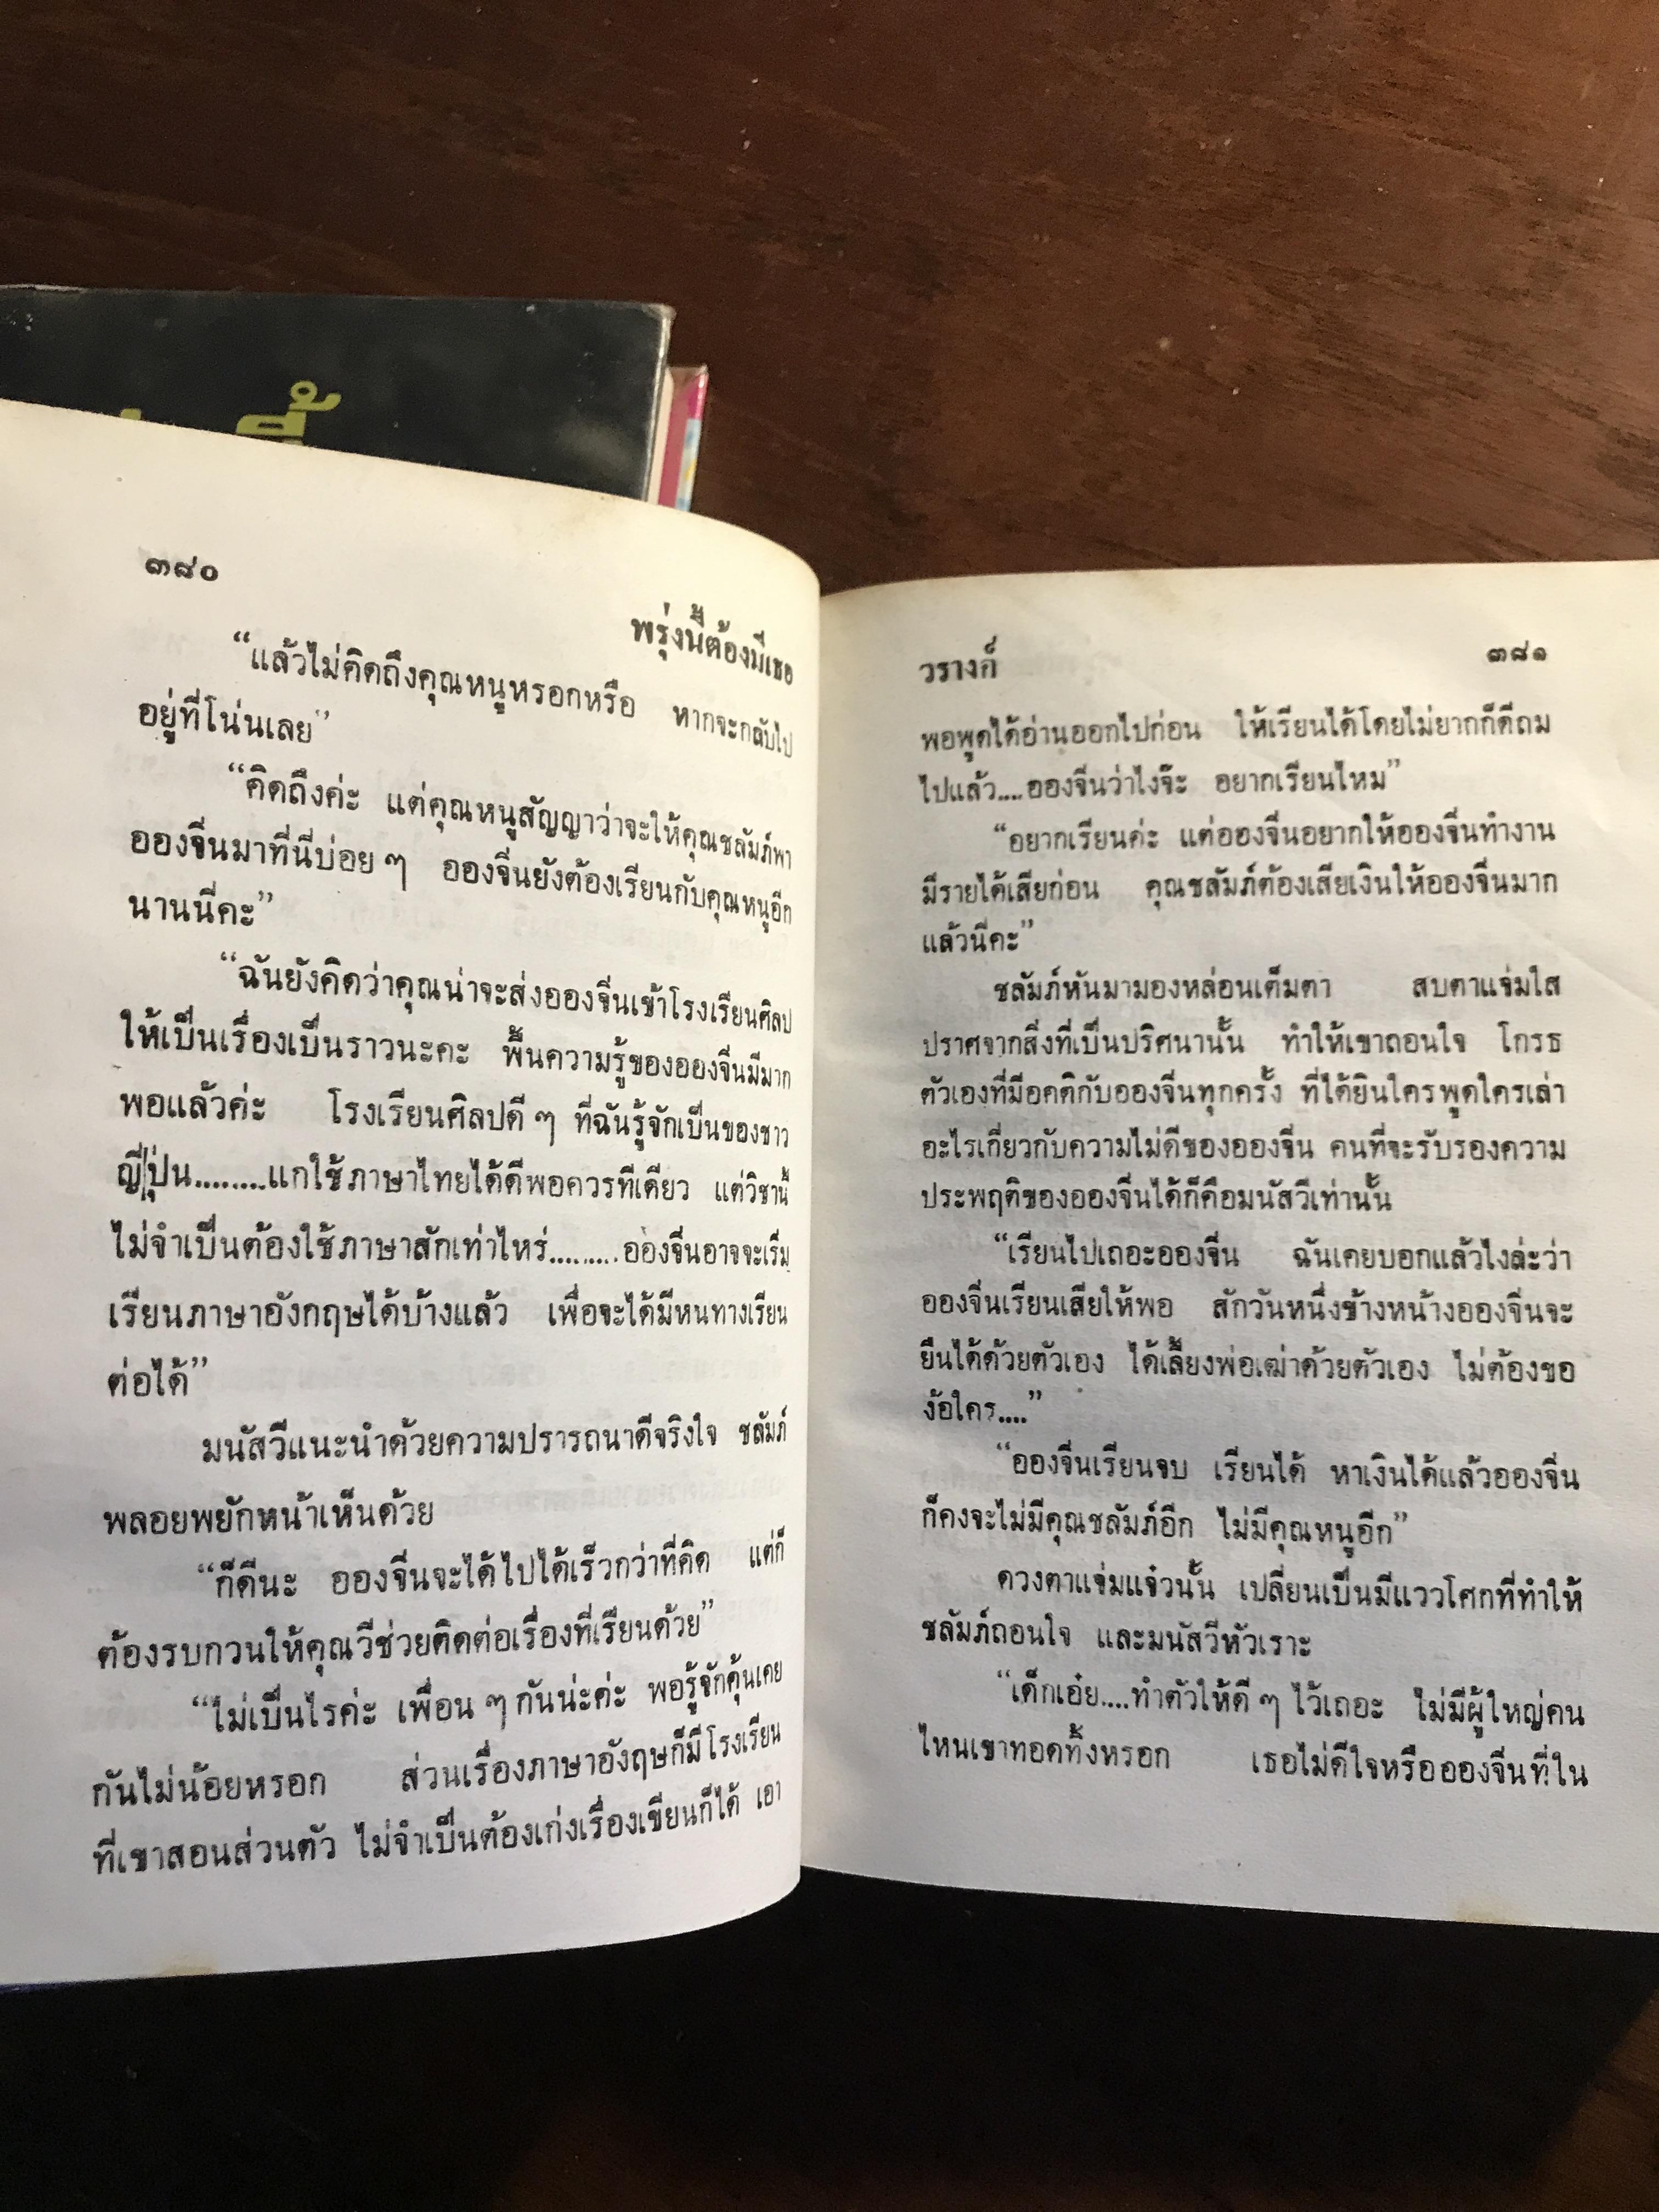 ๓๘๐
พรุ่งนี้ต้องมีเธอ
“แล้วไม่คิดถึงคุณหนูหรอกหรือ หากจะกลับไป
อยู่ที่โน่นเลย”
“คิดถึงค่ะ แต่คุณหนูสัญญาว่าจะให้คุณชลัมภ์พา
อองจีนมาที่นี่บ่อย ๆ อองจีนยังต้องเรียนกับคุณหนูอีก
นานนี่คะ”
“ฉันยังคิดว่าคุณน่าจะส่งอองจีนเข้าโรงเรียนศิลป
ให้เป็นเรื่องเป็นราวนะคะ พื้นความรู้ของอองจีนมีมาก
พอแล้วค่ะ โรงเรียนศิลปดี ๆ ที่ฉันรู้จักเป็นของชาว
ญี่ปุ่น........แกใช้ภาษาไทยได้ดีพอควรทีเดียว แต่วิชานี้
ไม่จำเป็นต้องใช้ภาษาสักเท่าไหร่.........อองจีนอาจจะเริ่ม
เรียนภาษาอังกฤษได้บ้างแล้ว เพื่อจะได้มีหนทางเรียน
ต่อได้”
มนัสวีแนะนำด้วยความปรารถนาดีจริงใจ ชลัมภ์
พลอยพยักหน้าเห็นด้วย
“ก็ดีนะ อองจีนจะได้ไปได้เร็วกว่าที่คิด แต่ก็
ต้องรบกวนให้คุณวีช่วยติดต่อเรื่องที่เรียนด้วย”
“ไม่เป็นไรค่ะ เพื่อน ๆ กันน่ะค่ะ พอรู้จักคุ้นเคย
กันไม่น้อยหรอก ส่วนเรื่องภาษาอังฤษก็มีโรงเรียน
ที่เขาสอนส่วนตัว ไม่จำเป็นต้องเก่งเรื่องเขียนก็ได้ เอา
วรางก์ ๓๘๑
พอพูดได้อ่านออกไปก่อน ให้เรียนได้โดยไม่ยากก็ดีถม
ไปแล้ว....อองจีนว่าไงจ๊ะ อยากเรียนไหม”
“อยากเรียนค่ะ แต่อองจีนอยากให้อองจีนทำงาน
มีรายได้เสียก่อน คุณชลัมภ์ต้องเสียเงินให้อองจีนมาก
แล้วนี่คะ”
ชลัมภ์หันมามองหล่อนเต็มตา สบตาแจ่มใส
ปราศจากสิ่งที่เป็นปริศนานั้น ทำให้เขาถอนใจ โกรธ
ตัวเองที่มีอคติกับอองจีนทุกครั้ง ที่ได้ยินใครพูดใครเล่า
อะไรเกี่ยวกับความไม่ดีของอองจีน คนที่จะรับรองความ
ประพฤติของอองจีนได้ก็คือมนัสวีเท่านั้น
“เรียนไปเถอะอองจีน ฉันเคยบอกแล้วไงล่ะว่า
อองจีนเรียนเสียให้พอ สักวันหนึ่งข้างหน้างอองจีนจะ
ยืนได้ด้วยตัวเอง ได้เลี้ยงพ่อเฒ่าด้วยตัวเอง ไม่ต้องขอ
ง้อใคร....”
“อองจีนเรียนจบ เรียนได้ หาเงินได้แล้วอองจีน
ก็คงจะไม่มีคุณชลัมภ์อีก ไม่มีคุณหนูอีก”
ดวงตาแจ่มแจ๋วนั้น เปลี่ยนเป็นมีแววโศกที่ทำให้
ชลัมภ์ถอนใจ และมนัสวีหัวเราะ
“เด็กเอ๋ย....ทำตัวให้ดี ๆ ไว้เถอะ ไม่มีผู้ใหญ่คน
ไหนเขาทอดทิ้งหรอก เธอไม่ดีใจหรืออองจีนที่ใน